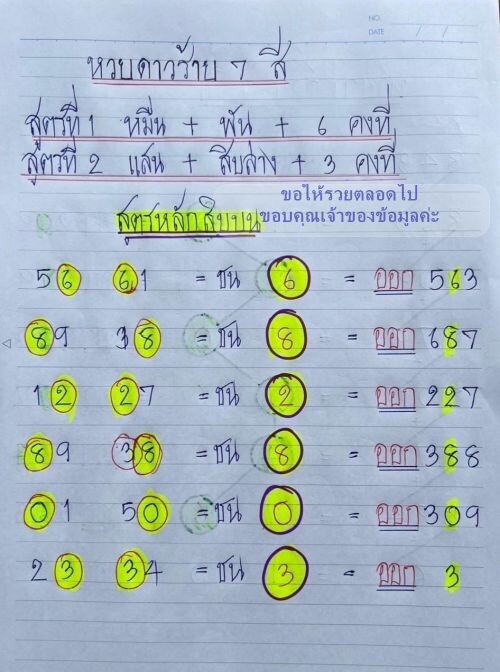 NO.
DATE
หวบดาวร้าย 7 สี
สูตรที่ 1 หมื่น + พัน + 6 คงที่
สูตรที่ 2 แสน + สิบล่าง + 3 คงที่
ขอให้รวยตลอดไป
สูตรหลักสิบบน ขอบคุณเจ้าของข้อมูลค่ะ
56 61 = ชน 6 = ออก 563
89 38 = ชน 8 = ออก 687
12 27 = ชน 2 = ออก 227
89 38 = ชน 8 = ออก 388
01 50 = ชน 0 = ออก 309
23 34 = ชน 3 = ออก 3